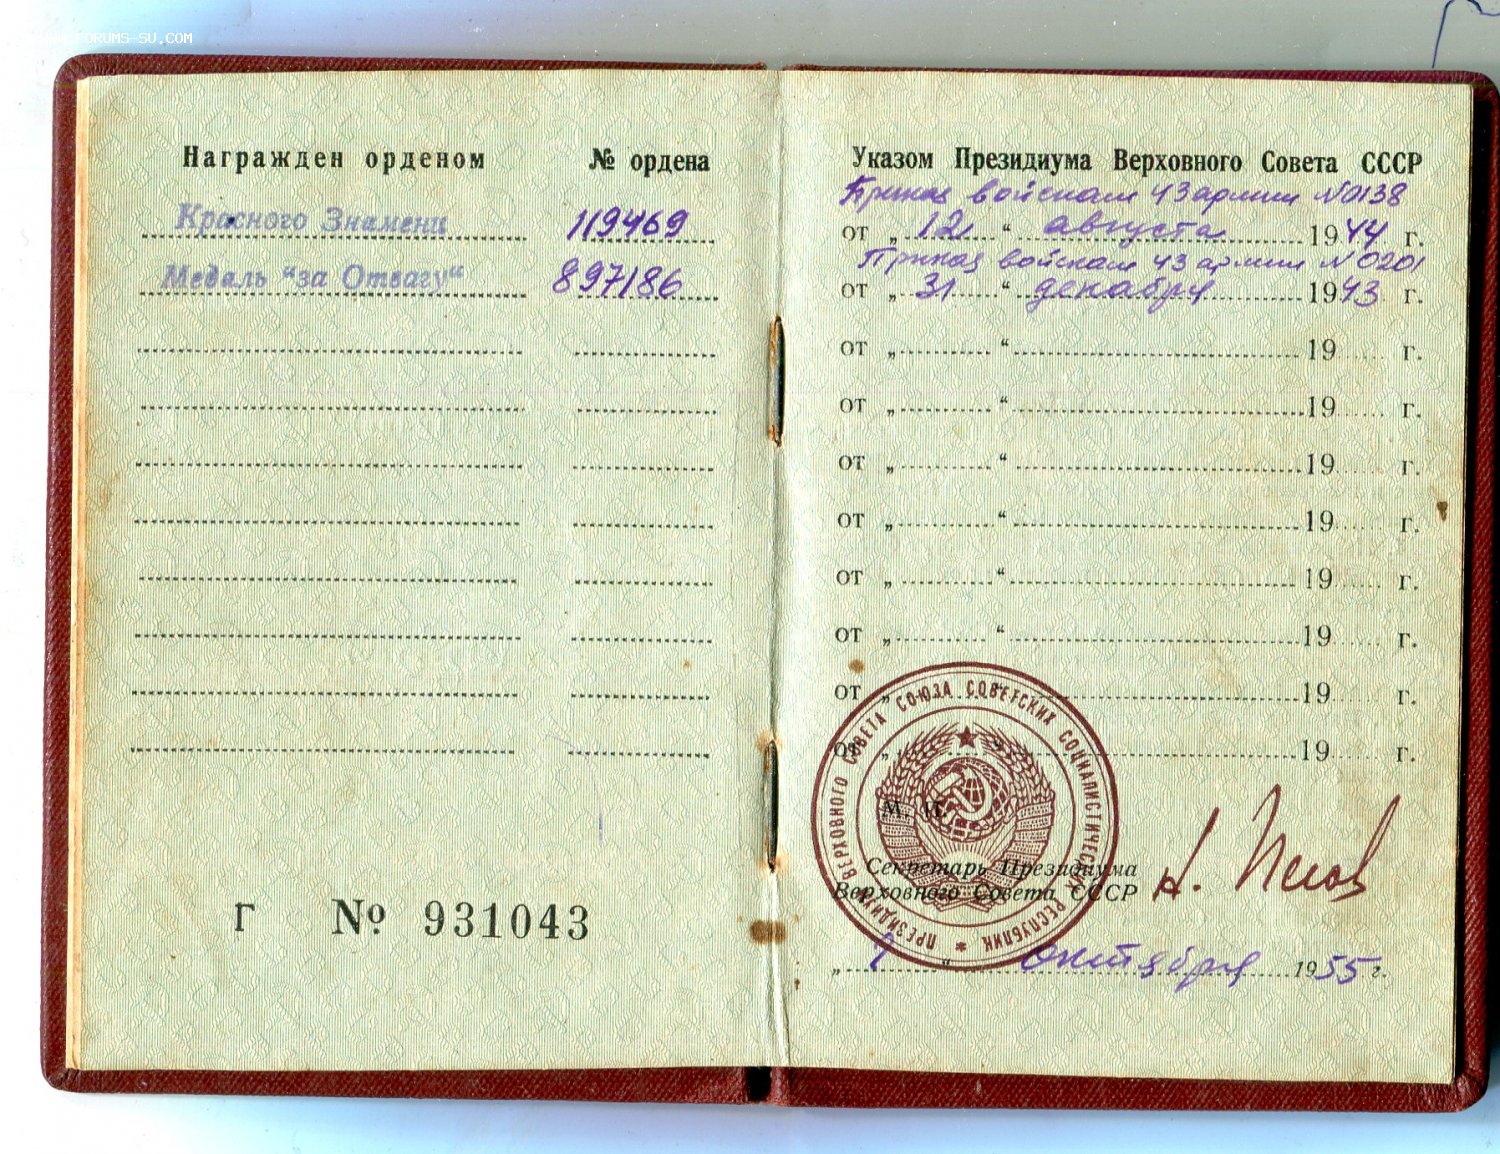 FORUMS-SU.COM
Награжден орденом № ордена
Красного Знамени 119469
Медаль "за Отвагу" 897186
Г № 931043
Указом Президиума Верховного Совета СССР
Приказ войскам 43 армии №0138
от „ 12 “ августа 1944 г.
Приказ войскам 43 армии №0201
от „ 31 “ декабря 1943 г.
от „ “ 19 г.
от „ “ 19 г.
от „ “ 19 г.
от „ “ 19 г.
от „ “ 19 г.
от „ “ 19 г.
от „ “ 19 г.
от „ “ 19 г.
М. П.
ПРЕЗИДИУМ ВЕРХОВНОГО СОВЕТА СОЮЗА СОВЕТСКИХ СОЦИАЛИСТИЧЕСКИХ РЕСПУБЛИК *
Секретарь Президиума
Верховного Совета СССР
„ “ октября 1955 г.